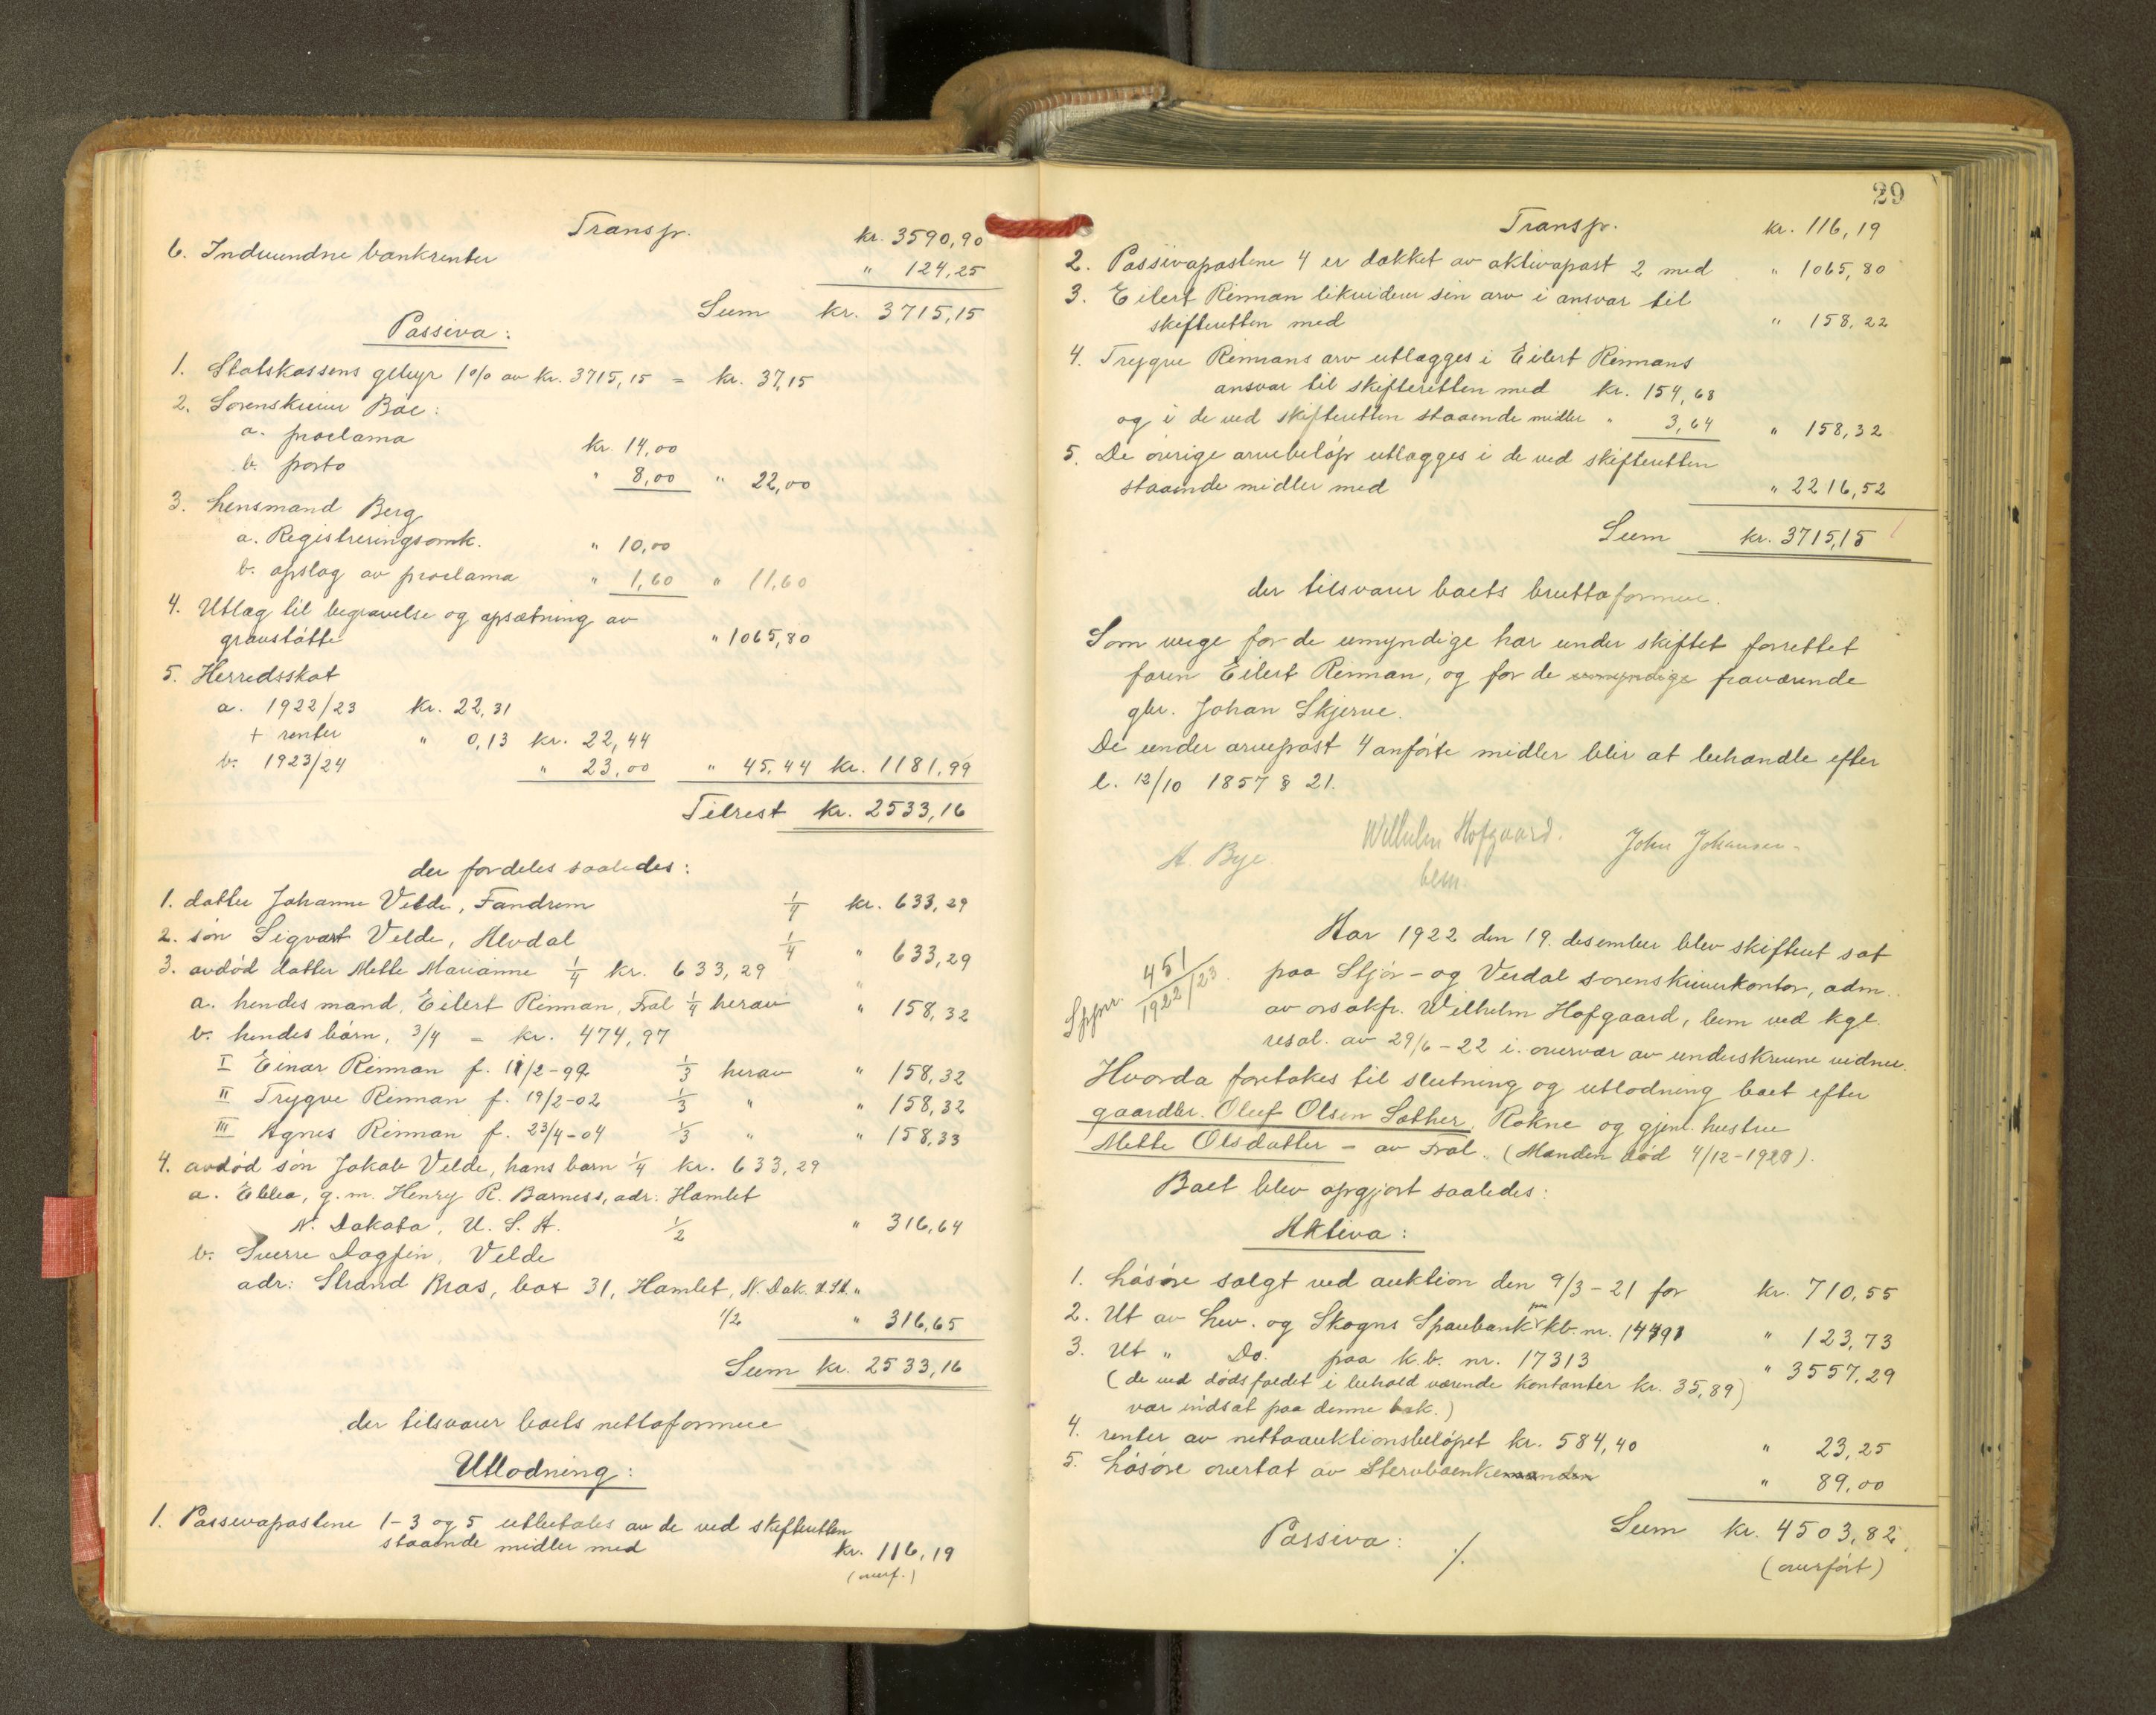 Transp. kr. 3590,90
6. Indvundne bankrenter " 124,25
Sum kr. 3715,15
Passiva:
1. Statskassens gebyr 1% av kr. 3715,15 = kr. 37,15
2. Sorenskriver Böe:
a. proclama kr. 14,00
b. porto " 8,00 " 22,00
3. Lensmand Berg
a. Registreringsomk. " 10,00
b. opslag av proclama " 1,60 " 11,60
4. Utlæg til begravelse og opsætning av
gravstötte " 1065,80
5. Herredsskat
a. 1922/23 kr. 22,31
+ renter " 0,13 kr. 22,44
b. 1923/24 " 23,00 " 45,44 kr. 1181,99
Tilrest kr. 2533,16
der fordeles saaledes:
1. datter Johanne Velde, Fandrem 1/4 kr. 633,29
2. sön Sigvart Velde, Alvdal 1/4 " 633,29
3. avdöd datter Mette Marianne 1/4 kr. 633,29 "
a. hendes mand, Eilert Rinnan, Fol 1/4 herav " 158,32
b. hendes börn, 3/4 = kr. 474,97
I Einar Rinnan f. 11/2-99 1/3 herav " 158,32
II Trygve Rinnan f. 19/2-02 1/3 " " 158,32
III Agnes Rinnan f. 23/4-04 1/3 " " 158,33
4. avdöd sön Jakob Velde, hans barn 1/4 kr. 633,29
a. Ebbea, g.m. Henry R. Barness, adr: Hamlet
N. Dakota, U.S.A. 1/2 " 316,64
b. Sverre Dagfin, Velde
adr: Strand Bros, box 31, Hamlet, N. Dak. U.S.A. "
1/2 " 316,65
Sum kr. 2533,16
der tilsvarer boets nettoformue
Utlodning:
1. Passivapostene 1-3 og 5 utbetales av de ved skifteretten
staaende midler med kr. 116,19
(overf.)
29
Transp. kr. 116,19
2. Passivapostene 4 er dækket av aktivapost 2 med " 1065,80
3. Eilert Rinnan likviderer sin arv i ansvar til
skifteretten med " 158,32
4. Trygve Rinnans arv utlægges i Eilert Rinnans
ansvar til skifteretten med kr. 154,68
og i de ved skifteretten staaende midler " 3,64 " 158,32
5. De övrige arvebelöp utlægges i de ved skifteretten
staaende midler med " 2216,52
Sum kr. 3715,15
der tilsvarer boets bruttoformue.
Som verge for de umyndige har under skiftet forrettet
faren Eilert Rinnan, og for de umyndige fraværende
gbr. Johan Skjerve.
De under arvepost 4 anförte midler blir at behandle efter
l. 12/10 1857 § 21.
A. Bye. Wilhelm Hofgaard. John Johansen.
bem.
Aar 1922 den 19. desember blev skifteret sat
Sppnr. 451 1922/23. paa Stjör- og Verdal sorenskriverkontor, adm.
av orsakfr. Wilhelm Hofgaard, bem ved kgl.
resol. av 29/6-22 i overvær av underskrevne vidner.
Hvorda foretokes til slutning og utlodning boet efter
gaardbr. Oluf Olsen Sæther, Rokne og gjenl. hustru
Mette Olsdatter - av Fol. (Manden död 4/12-1920).
Boet blev opgjort saaledes:
Aktiva:
1. Lösöre solgt ved auktion den 9/3-21 for kr. 710,55
2. Ut av Lev. og Skogns Sparebank paa kb. nr. 14791 " 123,73
3. Ut " Do. paa k.b. nr. 17313 " 3557,29
(de ved dödsfaldet i behold værende kontanter kr. 35,89)
var indsat paa denne bok.)
4. renter av nettoauktionsbelöpet kr. 584,40 " 23,25
5. Lösöre overtat av Stervboenkemanden " 89,00
Sum kr. 4503,82
Passiva: ./. (overfört)